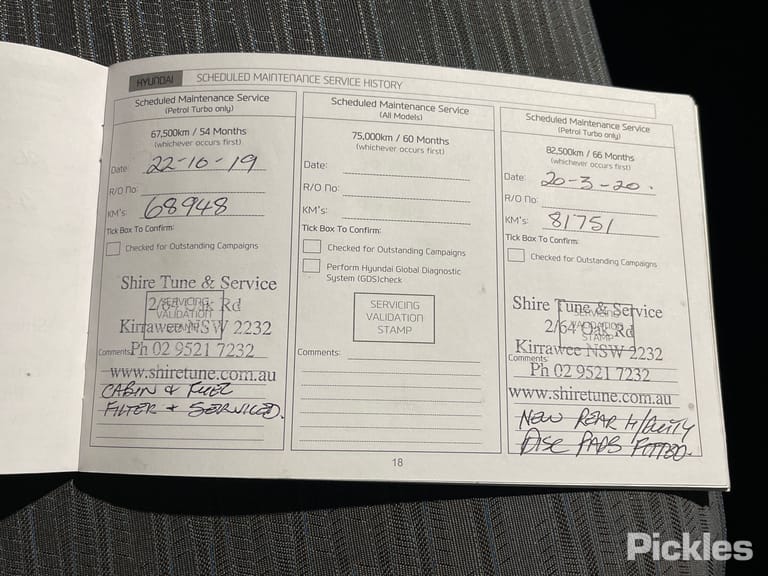 HYUNDAI SCHEDULED MAINTENANCE SERVICE HISTORY
Scheduled Maintenance Service
(Petrol Turbo only)
67,500km / 54 Months
(whichever occurs first)
Date: 22-10-19
R/O No:
KM's: 68948
Tick Box To Confirm:
Checked for Outstanding Campaigns
Shire Tune & Service
SERVICING
2/64 Oak Rd
VALIDATION
Kirrawee NSW 2232
STAMP
Comments:
Ph 02 9521 7232
www.shiretune.com.au
CABIN & FUEL
FILTER & SERVICED.
Scheduled Maintenance Service
(All Models)
75,000km / 60 Months
(whichever occurs first)
Date:
R/O No:
KM's:
Tick Box To Confirm:
Checked for Outstanding Campaigns
Perform Hyundai Global Diagnostic
System (GDS)check
SERVICING
VALIDATION
STAMP
Comments:
Scheduled Maintenance Service
(Petrol Turbo only)
82,500km / 66 Months
(whichever occurs first)
Date: 20-3-20.
R/O No:
KM's: 81751
Tick Box To Confirm:
Checked for Outstanding Campaigns
Shire Tune & Service
SERVICING
2/64 Oak Rd
VALIDATION
STAMP
Kirrawee NSW 2232
Comments:
Ph 02 9521 7232
www.shiretune.com.au
NEW REAR H/QLITY
DISC PADS FITTED.
18
Pickles